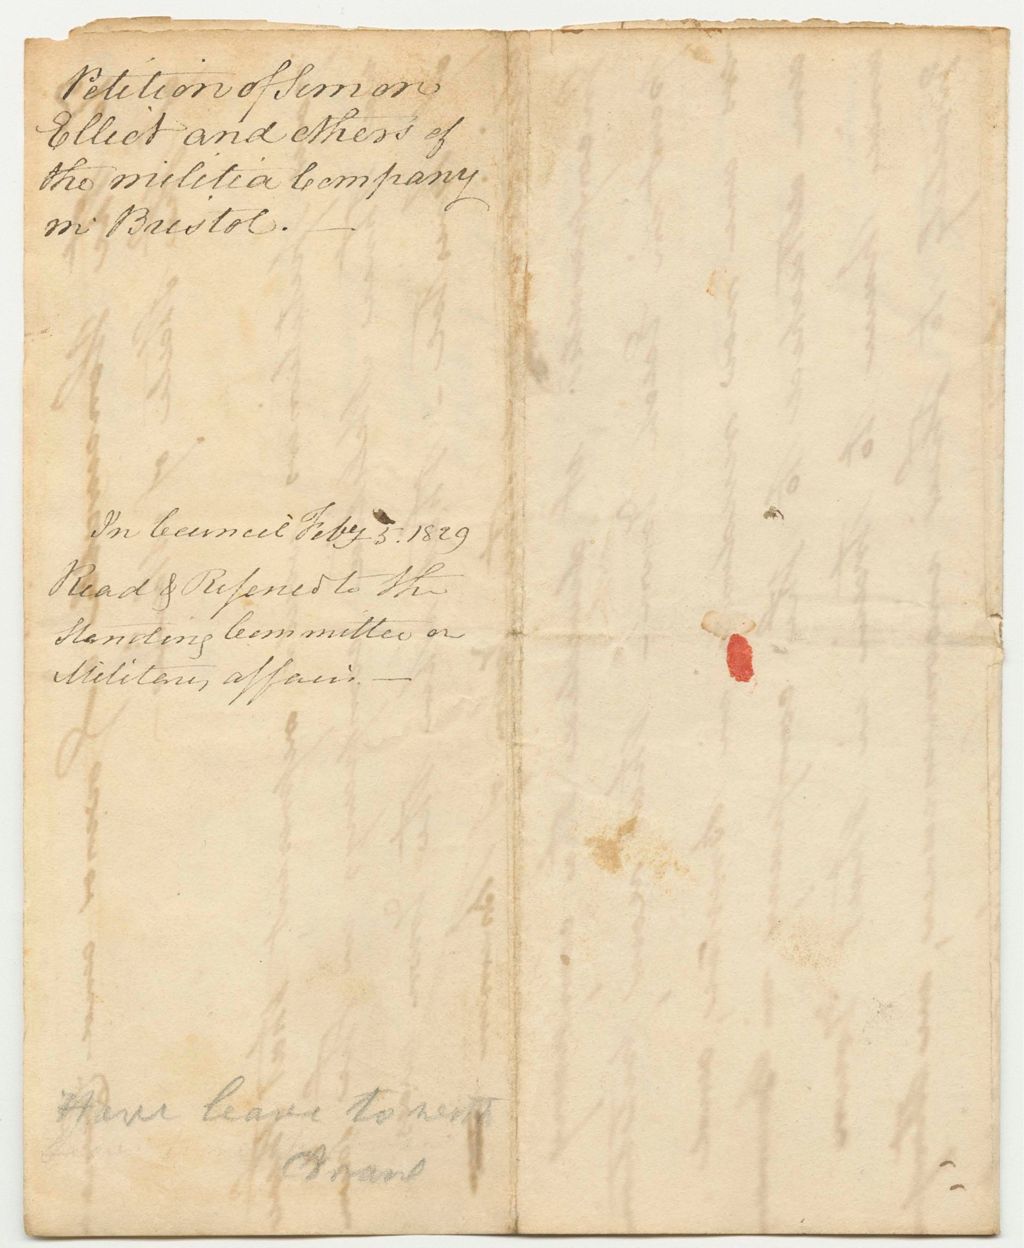 Petition of Simon
Elliot and others of
the militia Company
in Bristol. —
In Council Feby 5. 1829
Read & Refered to the
Standing Committee on
Military affairs —
Have leave to with
Draw